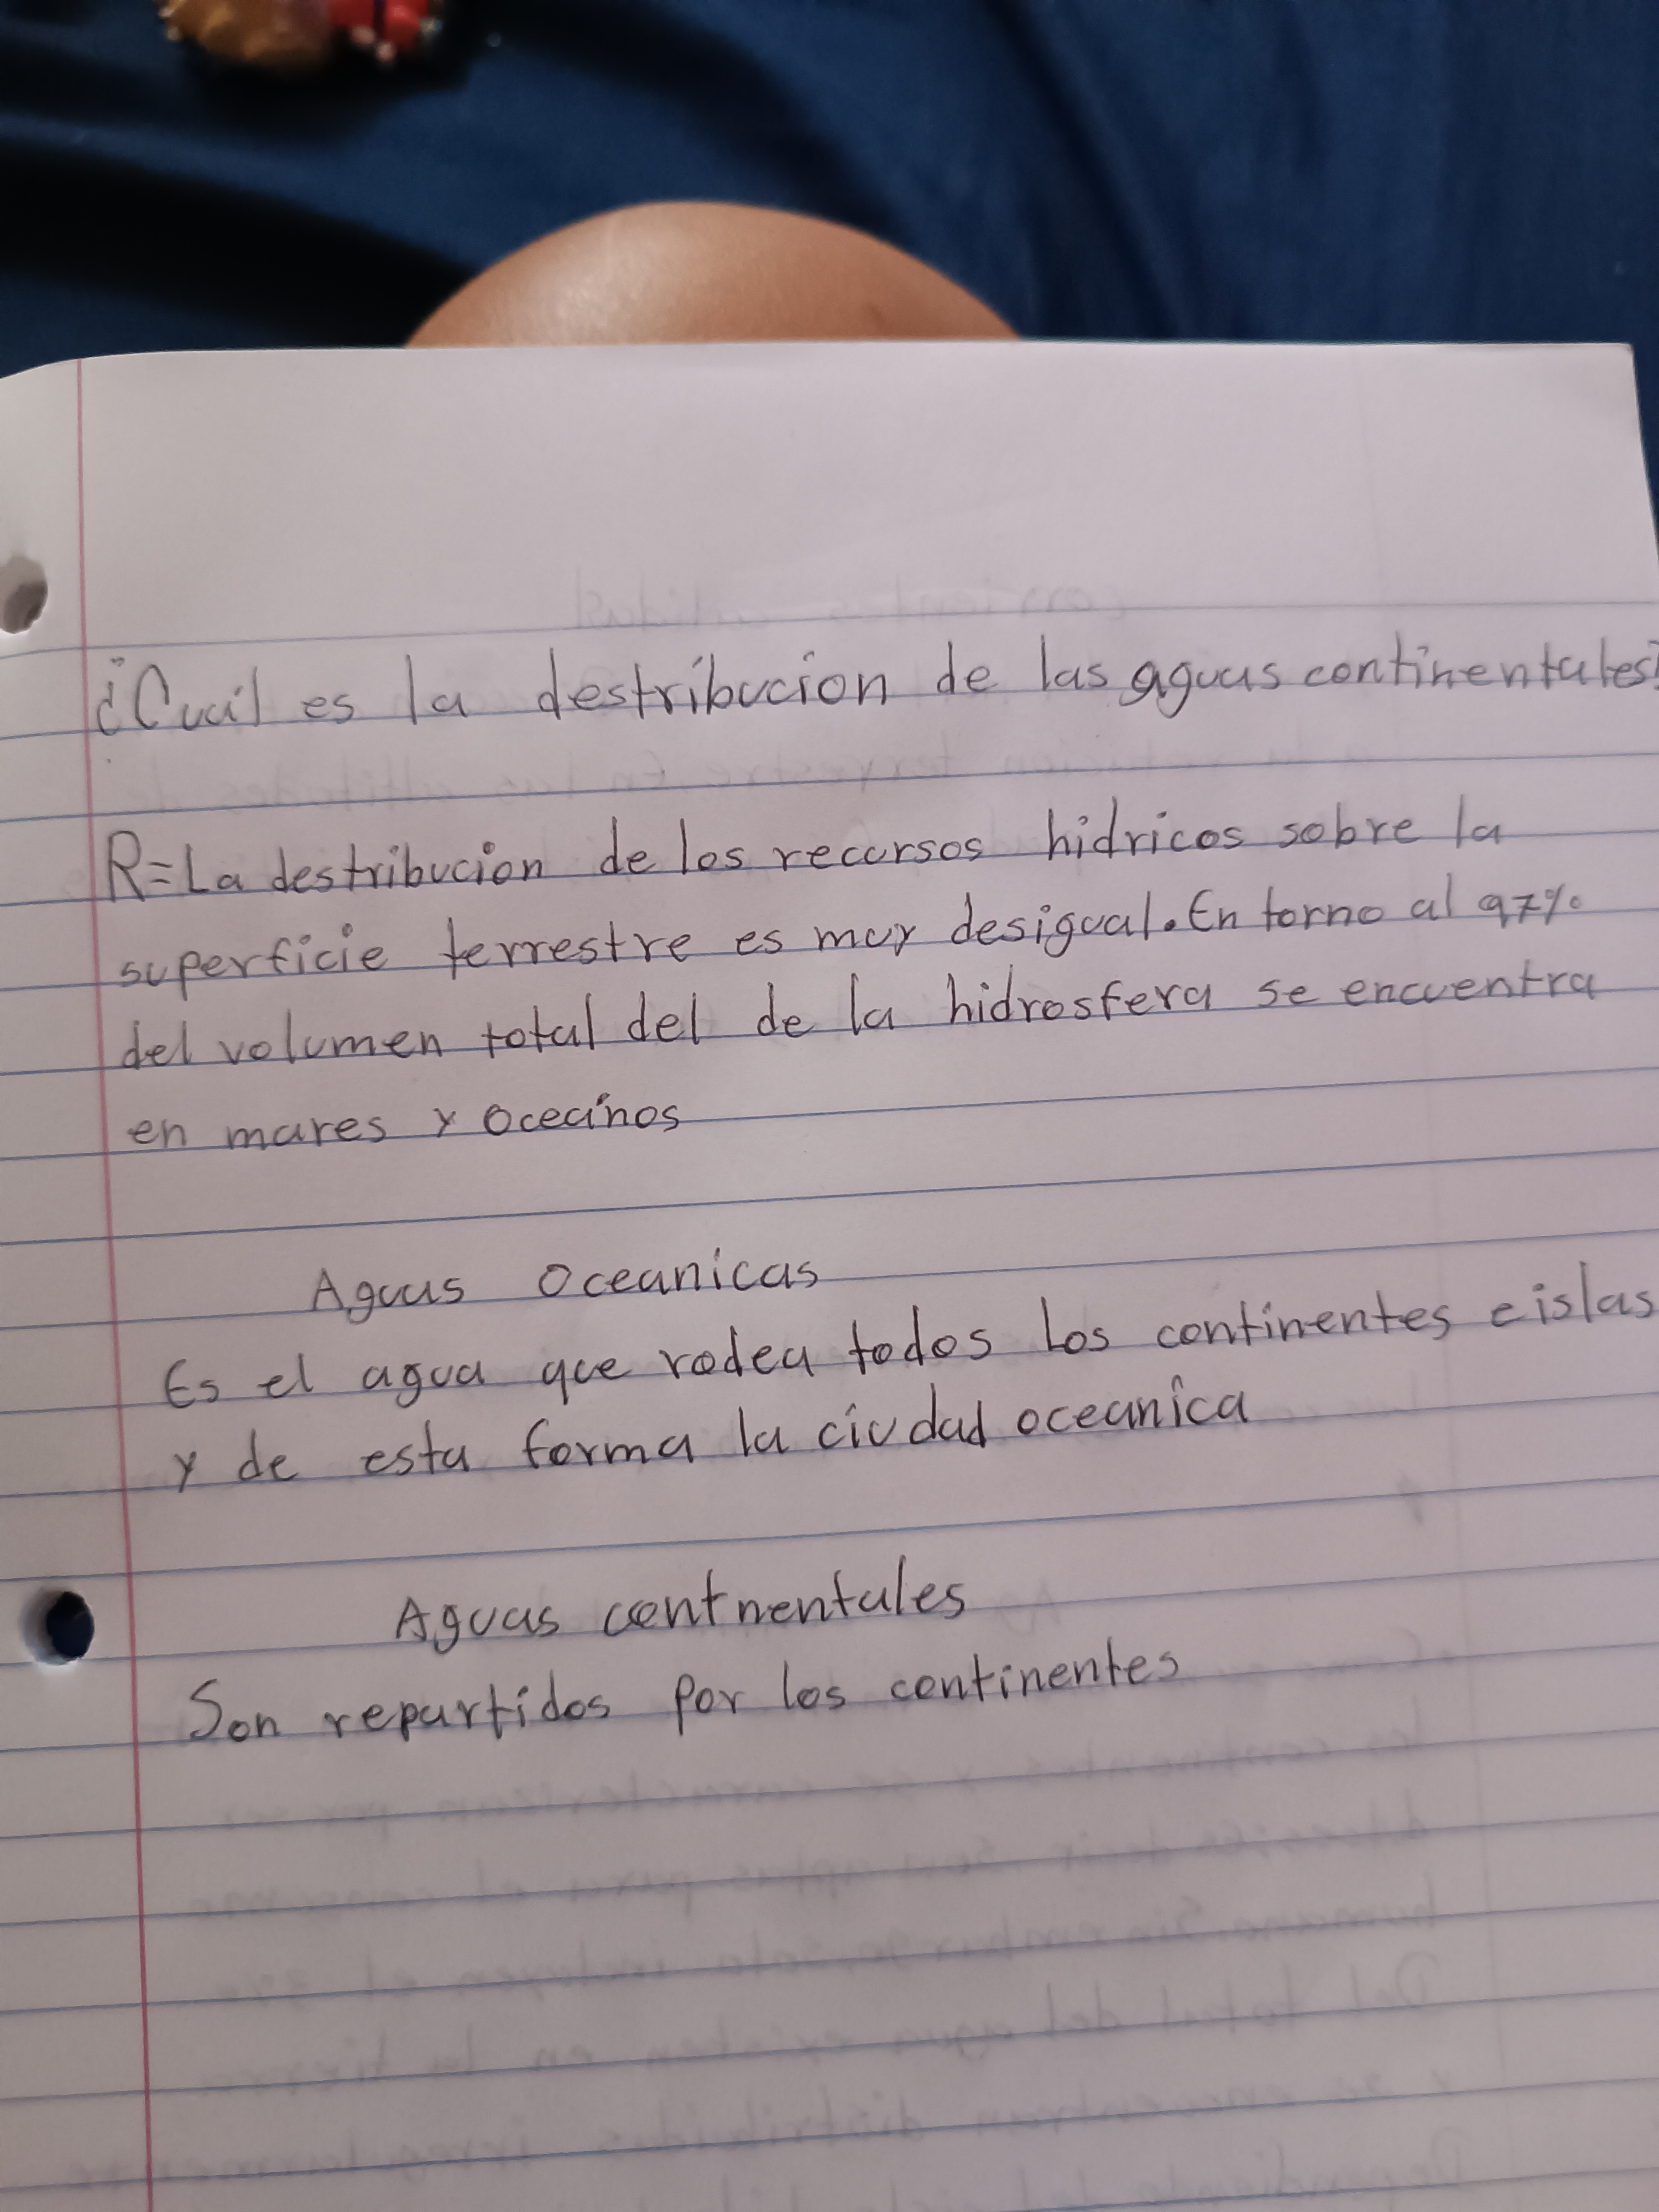 ¿Cuál es la destribucion de las aguas continentales?
R=La destribucion de los recursos hidricos sobre la
superficie terrestre es muy desigual. En torno al 97%
del volumen total del de la hidrosfera se encuentra
en mares y oceános
Aguas Oceanicas
Es el agua que rodea todos los continentes e islas
y de esta forma la ciudad oceanica
Aguas contnentales
Son repartidos por los continentes